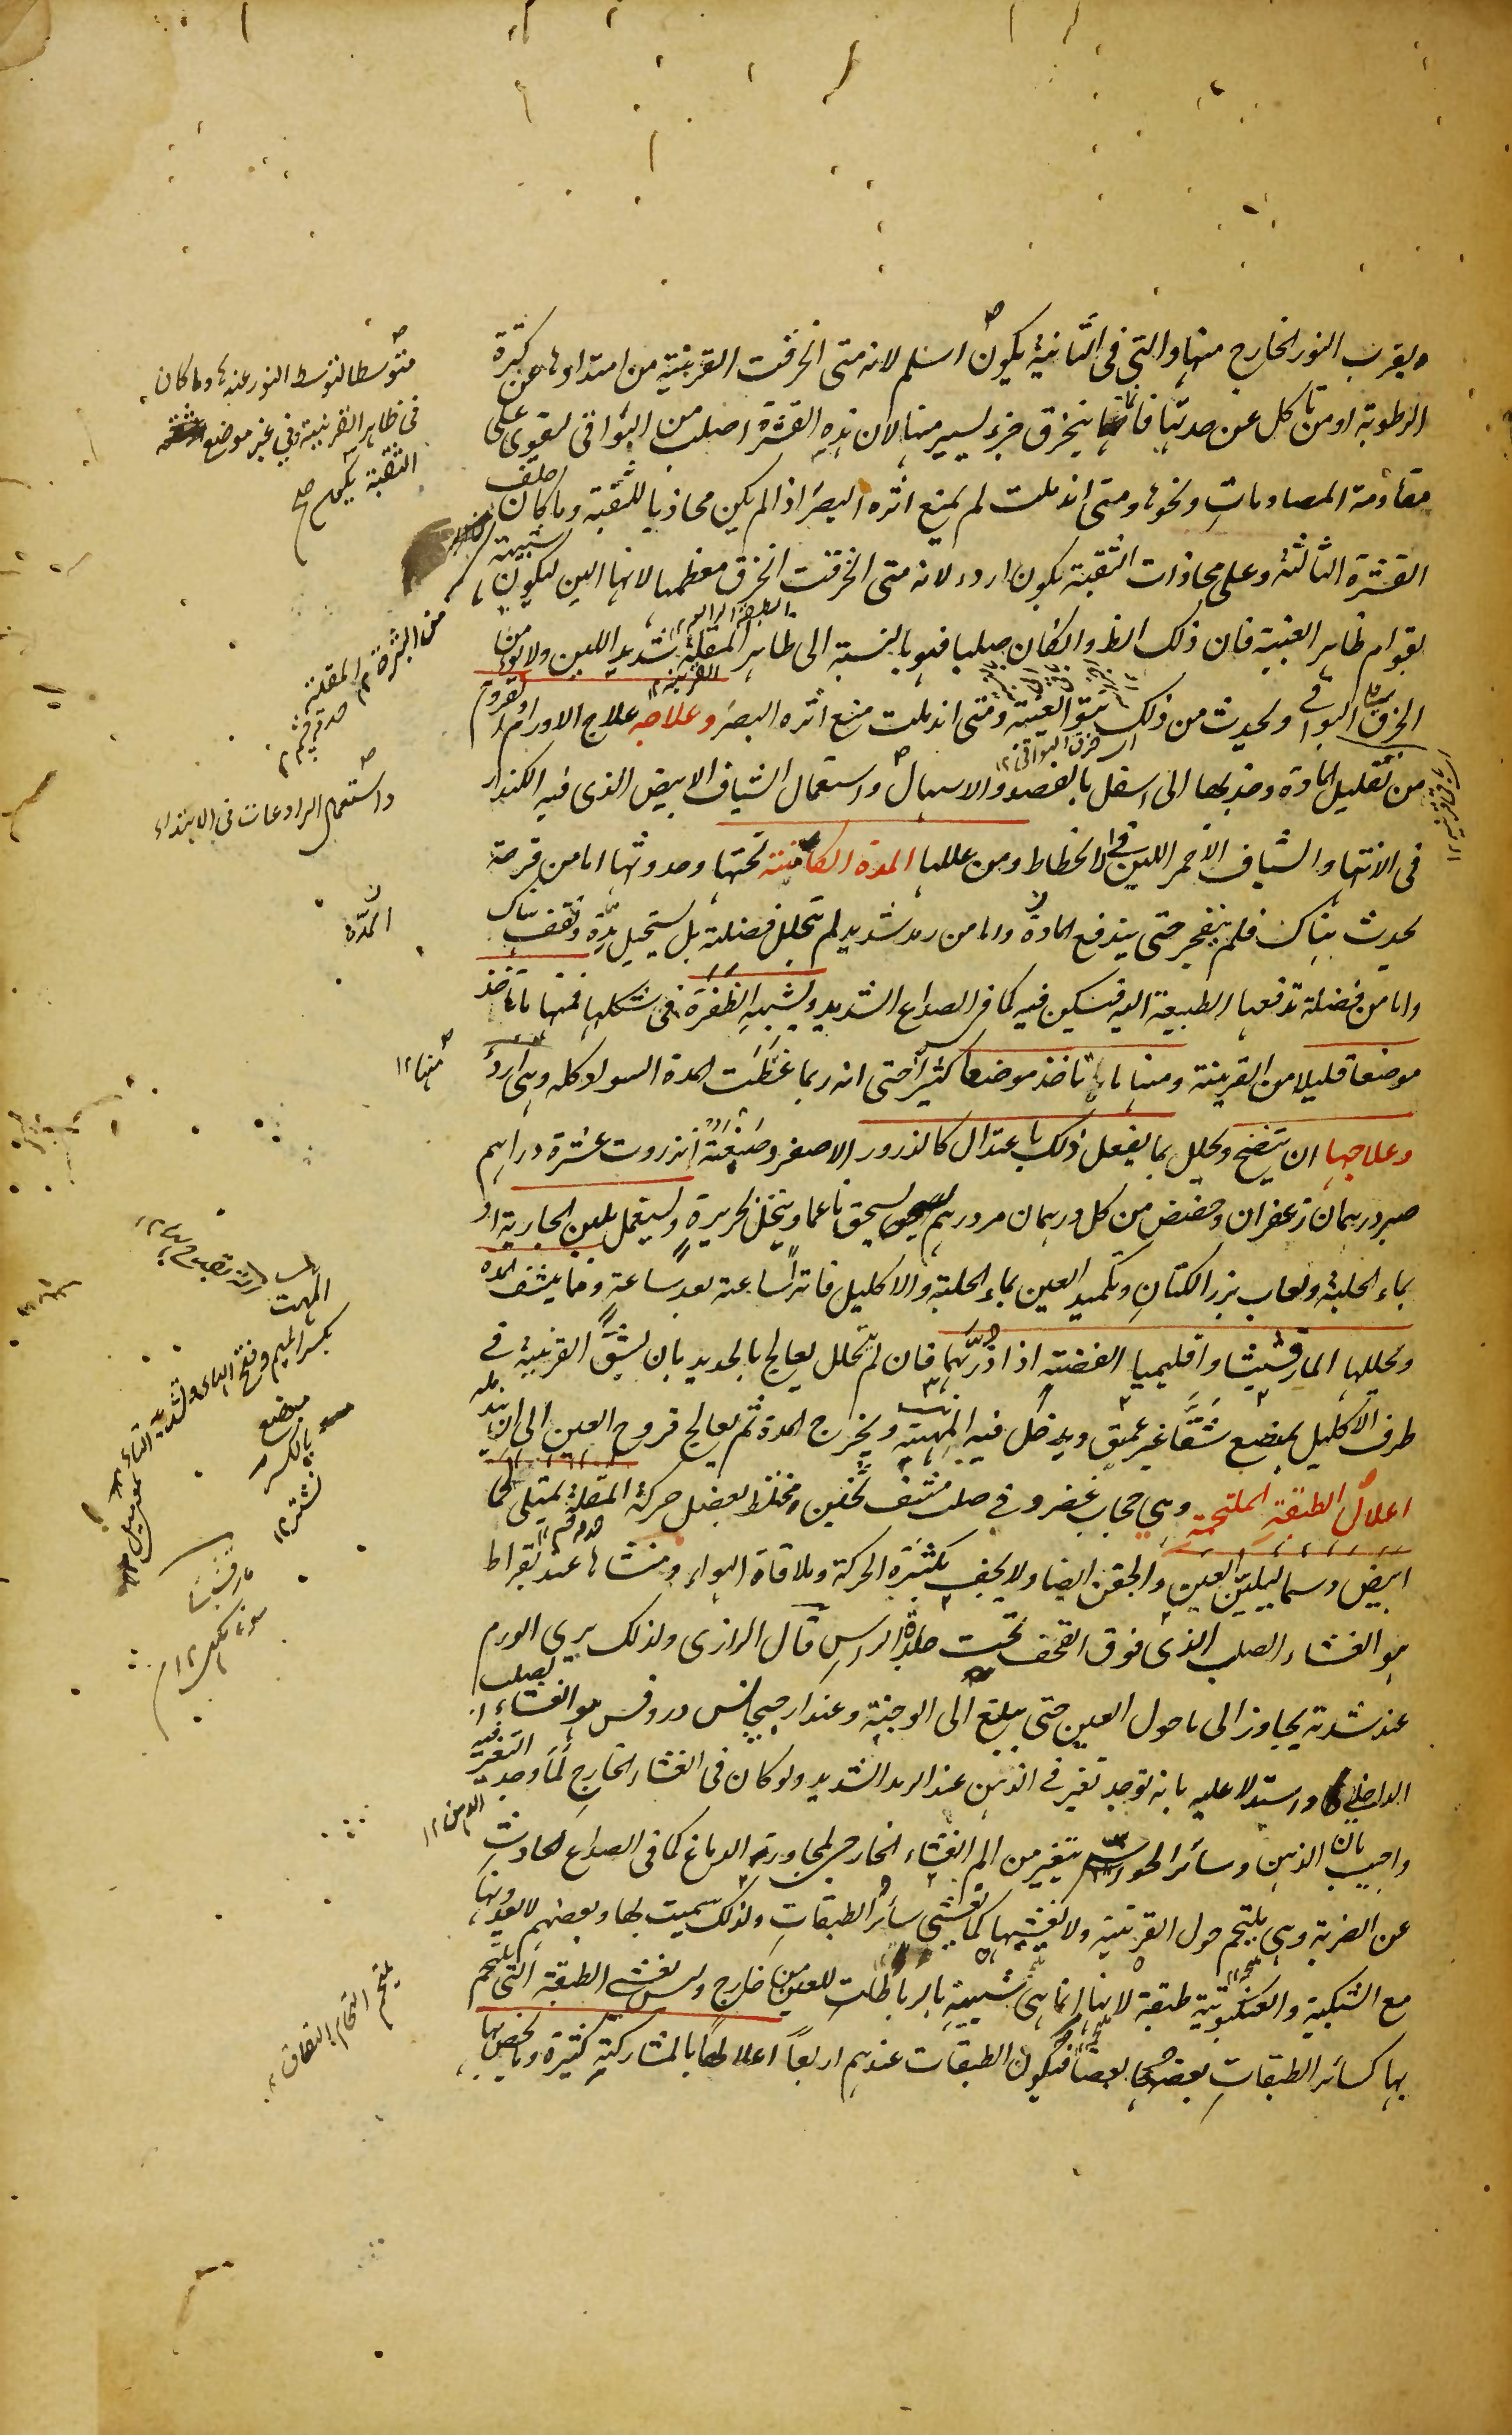 ويقرب النور الخارج منها والتي في الثانية يكون اسلم لانه متى انخرقت القرنية من امتدادها عن كثرة
الرطوبة او من تاكل عن حدتها فانما ينخرق جزء يسير منها لان هذه القشرة اصلب من البواقي لتقوى على
مقاومة المصادمات ونحوها ومتى اندملت لم يمنع اثره البصر اذا لم يكن محاذيا للثقبة وما كان خلف
القشرة الثالثة وعلى محاذات الثقبة يكون اردء لانه متى انخرقت انخرق معظمها لانها الين ليكون شبيهة
بقوام ظاهر العنبية فان ذلك الظ والكان صلبا فهو بالنسبة الى ظاهر المقلة شديد اللين ولا يؤمن
الخرق البواقي ويحدث من ذلك نتو العنبية ومتى اندملت منع اثره البصر وعلاجه علاج الاورام والقروح
من تقليل المادة وجذبها الى اسفل بالفصد والاسهال واستعمال الشياف الابيض الذي فيه الكندر
في الانتهاء والشياف الاحمر اللين في الانحطاط ومن عللها المدة الكامنة تحتها وحدوثها اما من قرحة
يحدث هناك فلم ينفجر حتى يندفع المادة واما من رمد شديد لم يتحلل فضلته بل يستحيل مدة وتقف هناك
واما من فضلة تدفعها الطبيعة اليه فتسكن فيه كما في الصداع الشديد ويشبه الظفرة في شكلها فمنها ما تاخذ
موضعا قليلا من القرنية ومنها ما تاخذ موضعا كثيرا حتى انه ربما غطت المدة السواد كله وهي اردء
وعلاجها ان ينضج ويحلل بما يفعل ذلك باعتدال كالذرور الاصفر وصنعته انزروت عشرة دراهم
صبر درهمان زعفران وحضض من كل درهمان مر درهم يسحق ناعما وينخل بحريرة ويستعمل بلبن الجارية او
بماء الحلبة ولعاب بزر الكتان وتكميد العين بماء الحلبة والاكليل فاترا ساعة بعد ساعة ومما ينشف المدة
ويحللها المارقشيثا واقليميا الفضة اذا ذر بهما فان لم يتحلل يعالج بالحديد بان يشق القرنية في
طرف الاكليل بمبضع شقا غير عميق ويدخل فيه المهت ويخرج المدة ثم يعالج قروح العين الى ان يندمل
اعلال الطبقة الملتحمة وهي حجاب غضروفي صلب مشف ثخين مختلط بعضل حركة المقلة يمتلى لحما
ابيض دسما ليلين العين والجفن ايضا ولا يجف بكثرة الحركة وملاقاة الهواء ومنشاها عند بقراط
هو الغشاء الصلب الذي فوق القحف تحت جلدة الراس قال الرازي ولذلك يرى الورم
عند شدته يجاوز الى ما حول العين حتى يبلغ الى الوجنة وعند ارجيجانس وروفس هو الغشاء الصلب
الداخل واستدلا عليه بانه توجد تغير في الذهن عند الرمد الشديد ولو كان في الغشاء الخارج لما وجد التغير فيه
واجيب بان الذهن وسائر الحواس يتغير من الم الغشاء الخارج لمجاورته الدماغ كما في الصداع الحادث
عن الضربة وهي يلتحم حول القرنية ولا يغشيها كما يغشي سائر الطبقات ولذلك سميت بها وبعضهم لا يعدونها
مع الشبكية والعنكبوتية طبقة لانها انما هي شبيهة بالرباطات للعين من خارج وليس يغشى الطبقة التي يلتحم
بها كسائر الطبقات بعضها بعضا فيكون الطبقات عندهم اربعا اعلالها بالمشاركة كثيرة وما يخص بها
متوسطا لتوسط النور عنه ها وما كان
في ظاهر القرنية وفي غير موضع
الثقبة يكون
واستعمال الرادعات في الابتداء
المدة
منها ١٢
المهت
بكسر الميم وفتح الهاء وتشديد التاء
مبضع
بالكسر
نشتر ١٢
مارقشيثا
يلتحم التحام